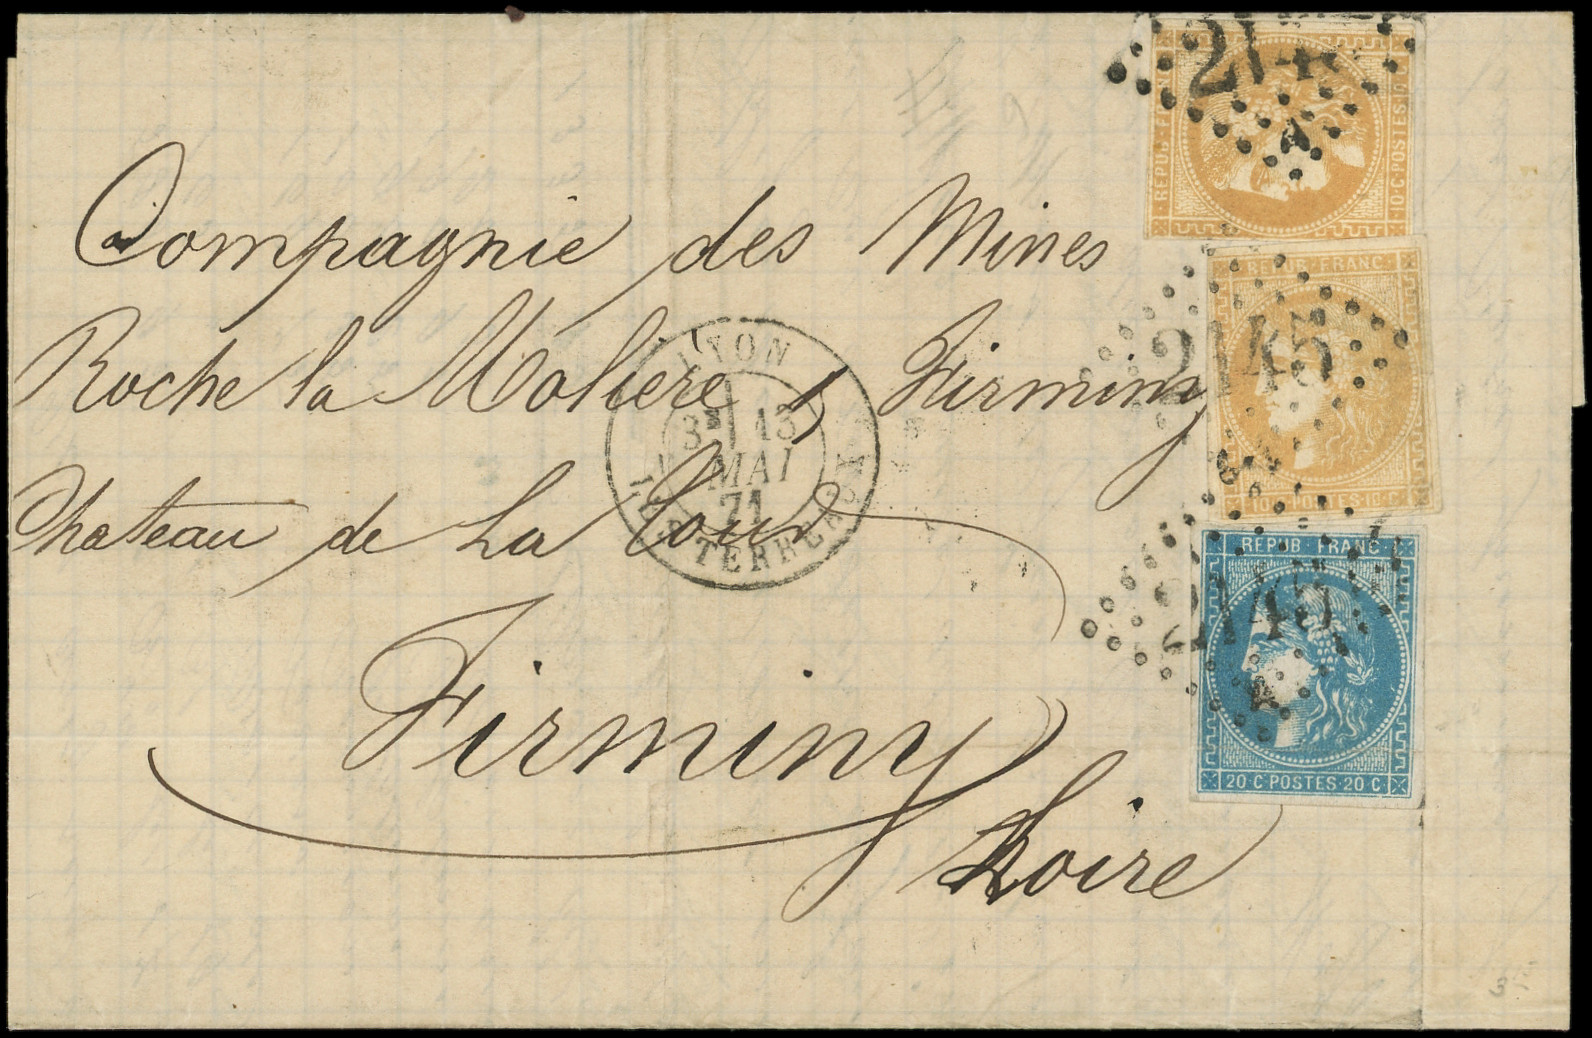 Compagnie des Mines
Roche la Molière & Firminy
Chateau de La Tour
Firminy
Loire
LYON
3E 13
MAI
71
LES TERREAUX
214
REPUB FRANC
10·C·POSTES
REPUB FRANC
2145
10 C POSTES·10 C
REPUB FRANC
2145
20·C·POSTES·20 C
3